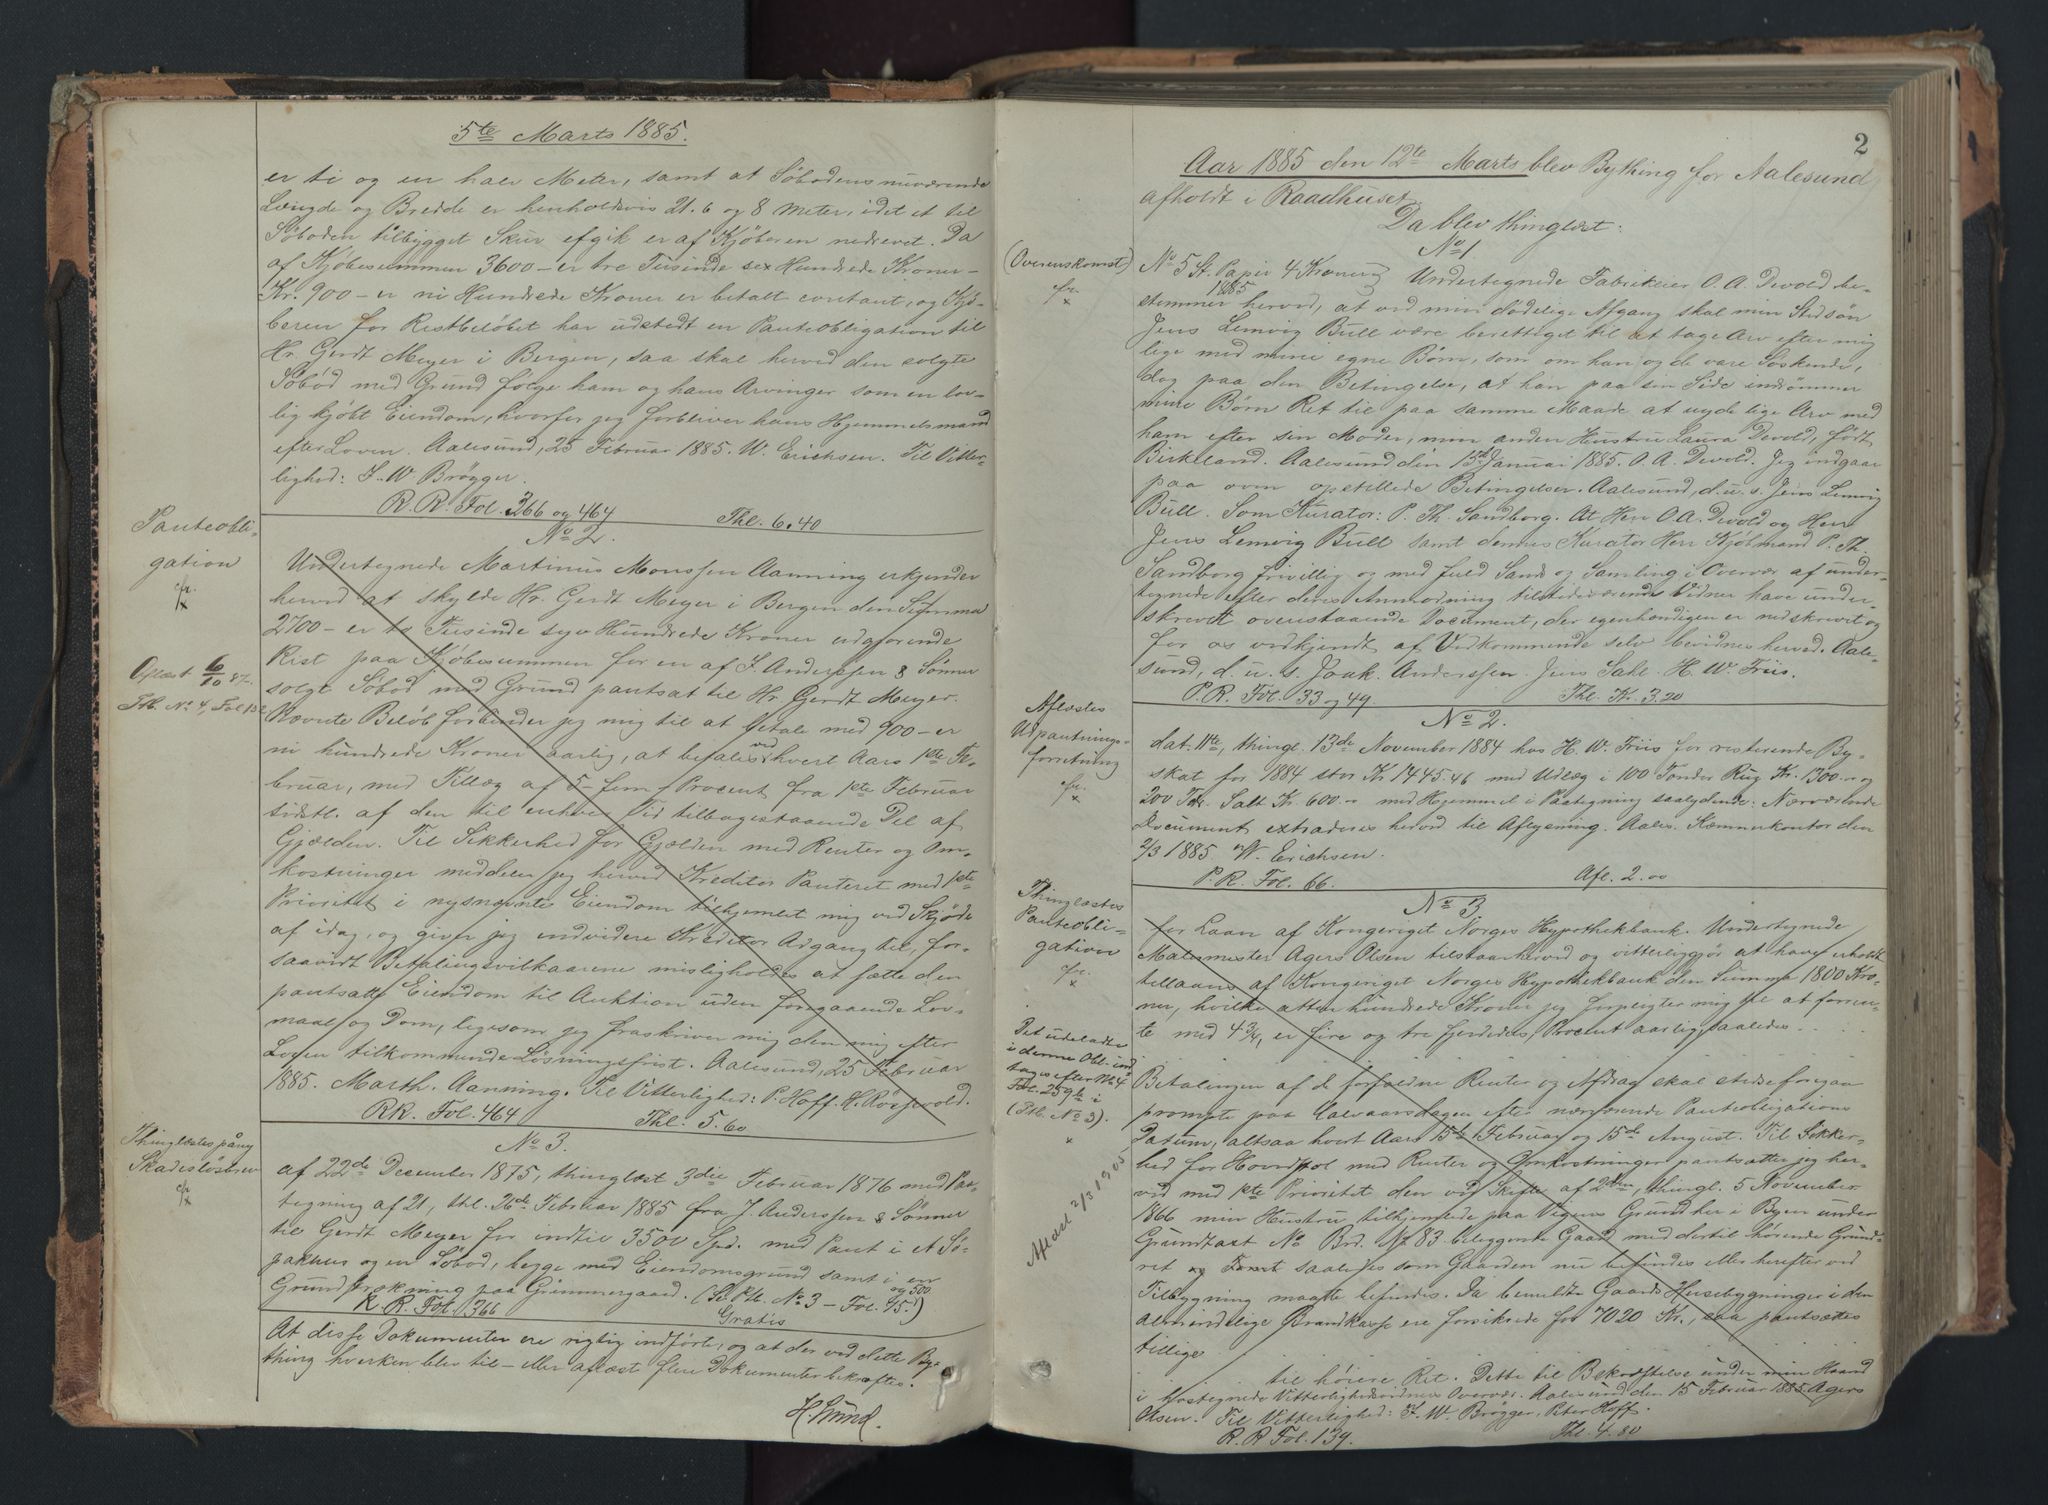 5te Marts 1885.
er ti og en halv Meter, samt at Søbodens nuværende
Længde og Bredde er henholdsvis 21.6 og 8 Meter, idet et til
Søboden tilbygget Skur efgik er af Kjøberen nedrevet. Da
af Kjøbesummen 3600 – er tre Tusinde sex Hundrede Kroner –
Kr. 900 – er ni Hundrede Kroner er betalt contant, og Kjø-
beren for Restbeløbet har udstedt en Panteobligation til
Hr. Gerdt Meyer i Bergen, saa skal herved den solgte
Søbod med Grund følge ham og hans Arvinger som en lov-
lig kjøbt Eiendom, hvorfor jeg forbliver hans Hjemmelsmand
efter Loven. Aalesund, 25 Februar 1885. W. Erichsen. Til Vitter-
lighed: F. W. Brøgger.
R. R. Fol. 366 og 464 Thl. 6.40
Panteobli-
gation
cfr.
x
No 2.
Undertegnede Martinus Monssen Aanning erkjender
herved at skylde Hr. Gerdt Meyer i Bergen den Summa
2700 – er to Tusinde syv Hundrede Kroner udgjørende
Rest paa Kjøbesummen for en af J. Anderssen & Sønner
solgt Søbod med Grund pantsat til Hr. Gerdt Meyer.
Nævnte Beløb forbinder jeg mig til at betale med 900 – er
ni hundrede Kroner aarlig, at betales ved hvert Aars 1ste Fe-
bruar, med Tillæg af 5 – fem – Procent fra 1ste Februar
sidstl. af den til enhver Tid tilbagestaaende Del af
Gjælden. Til Sikkerhed for Gjælden med Renter og Om-
kostninger meddeler jeg herved Kreditor Panteret med 1ste
Prioritet i nysnævnte Eiendom tilhjemlet mig ved Skjøde
af idag, og giver jeg endvidere Kreditor Adgang til, for-
saavidt Betalingsvilkaarene misligholdes at sætte den
pantsatte Eiendom til Auktion uden foregaaende Lov-
maal og Dom, ligesom jeg fraskriver mig den mig efter
Loven tilkommende Løsningsfrist. Aalesund, 25 Februar
1885. Marth. Aanning. Til Vitterlighed: P. Hoff. H. Røssevold.
RR. Fol. 464 Thl. 5.60
Aflæst 6/10 87.
Ptb. No 4, Fol 132
Thinglæstes påny
Skadesløsbrev
cfr.
x
No 3.
af 22de December 1875, thinglæst 3die Februar 1876 med Paa-
tegning af 21, thl. 26de Februar 1885 fra J. Anderssen & Sønner
til Gerdt Meyer for indtil 3500 Spd. med Pant i et Sø-
pakhus og en Søbod, begge med Eiendomsgrund samt i en
Grundstrækning paa Grimmergaard. (Se Ptb. No 3 – Fol. 95. og 500)
R. R. Fol. 366 Gratis
At disse Dokumenter ere rigtig indførte, og at der ved dette By-
thing hverken blev til – eller aflæst flere Dokumenter bekræftes.
H. Lund.
2
Aar 1885 den 12te Marts blev Bything for Aalesund
afholdt i Raadhuset.
Da blev thinglæst:
(Overenskomst)
cfr.
x
No 1
No 5 St. Papir 4 Kroner 1885 Undertegnede Fabrikeier O. A. Devold be-
stemmer herved, at ved min dødelige Afgang skal min Stedsøn
Jens Lemvig Bull være berettiget til at tage Arv efter mig
lige med mine egne Børn, som om han og de vare Søskende,
dog paa den Betingelse, at han paa sin Side indrømmer
mine Børn Ret til paa samme Maade at nyde lige Arv med
ham efter sin Moder, min anden Hustru Laura Devold, født
Birkeland. Aalesund den 13de Januar 1885. O. A. Devold. Jeg indgaar
paa oven opstillede Betingelser. Aalesund, d. u. s. Jens Lemvig
Bull. Som Kurator: P. Th. Sandborg. At Herr O. A. Devold og Herr
Jens Lemvig Bull samt dennes Kurator Herr Kjøbmand P. Th.
Sandborg frivillig og med fuld Sands og Samling i Overvær af under-
tegnede efter deres Anmodning tilstedeværende Vidner have under-
skrevet ovenstaaende Document, der egenhændigen er nedskrevet og
for os vedkjendt af Vedkommende selv bevidnes herved. Aale-
sund, d. u. s. Joak. Anderssen. Jens Dahl. H. W. Friis.
P. R. Fol. 33 og 49. Thl. Kr. 3.20
Aflæstes
Udpantnings-
forretning
cfr.
x
No 2.
dat. 11te, thingl. 13de November 1884 hos H. W. Friis for resterende By-
skat for 1884 stor Kr 1445.46 med Udlæg i 100 Tønder Rug Kr. 1300.– og
200 Tdr. Salt Kr. 600.– med Hjemmel i Paategning saalydende: Nærværende
Document extraderes herved til Aflysning. Aales. Kæmnerkontor den
2/3 1885. W. Erichsen.
P. R. Fol. 66. Afl. 2.00
Thinglæstes
Panteobli-
gation
cfr.
x
No 3
for Laan af Kongeriget Norges Hypothekbank. Undertegnede
Malermester Agers Olsen tilstaar herved og vitterliggjør at have erholdt
tillaans af Kongeriget Norges Hypothekbank den Summa 1800 Kro-
ner, hvilke atten hundrede Kroner jeg forpligter mig til at forren-
te med 4 3/4, er fire og tre fjerdedels, Procent aarlig saaledes . . .
Betalingen af de forfaldne Renter og Afdrag skal stedse foregaa
prompte paa Halvaarsdagen efter nærværende Panteobligations
Datum, altsaa hvert Aars 15de Februar og 15de August. Til Sikker-
hed for Hovedstol med Renter og Omkostninger pantsætter jeg her-
ved med 1ste Prioritet den ved Skifte af 2den, thingl. 5 November
1866 min Hustru tilhjemlede paa Grund her i Byen under
Grundtaxt No Brd. No 83 beliggende Gaard med dertil hørende Grund-
ret og Tomt saaledes som Gaarden nu befindes eller herefter ved
Tilbygning maatte befindes. Da bemeldte Gaards Husebygninger i den
almindelige Brandkasse ere forsikrede for 7020 Kr., saa pantsættes
tillige
til høiere Ret. Dette til Bekræftelse under min Haand
i hostegnede Vitterlighedsvidners Overvær. Aalesund den 15 Februar 1885. Agers
Olsen. Til Vitterlighed: F. W. Brøgger. Peter Hoff.
R. R Fol. 139. Thl. 4.80
Det udeladte
i denne Obl. ind-
tages efter No 4
Fol. 259 i
(Ptb. No 3).
x
Aflæst 2/3 1905